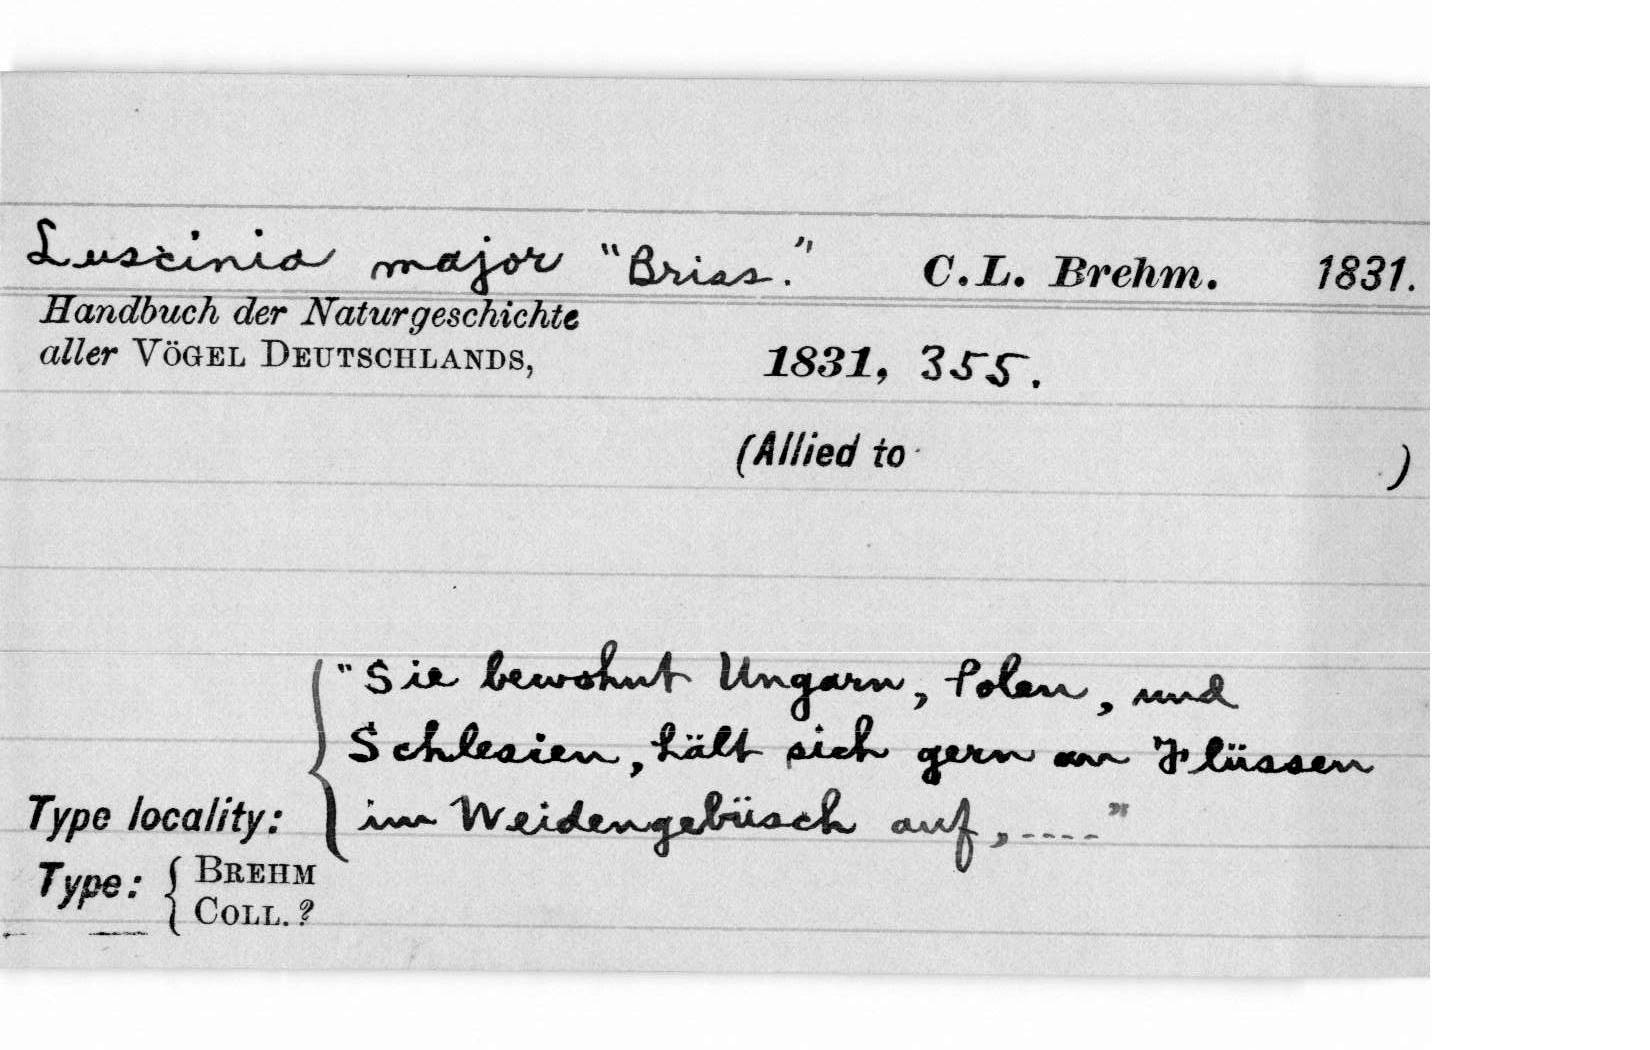 Luscinia major "Briss." C.L. Brehm. 1831.
Handbuch der Naturgeschichte
aller VÖGEL DEUTSCHLANDS, 1831, 355.
(Allied to )
"Sie bewohnt Ungarn, Polen, und
Schlesien, hält sich gern an Flüssen
Type locality: im Weidengebüsch auf, ....."
Type: { BREHM
COLL. ?